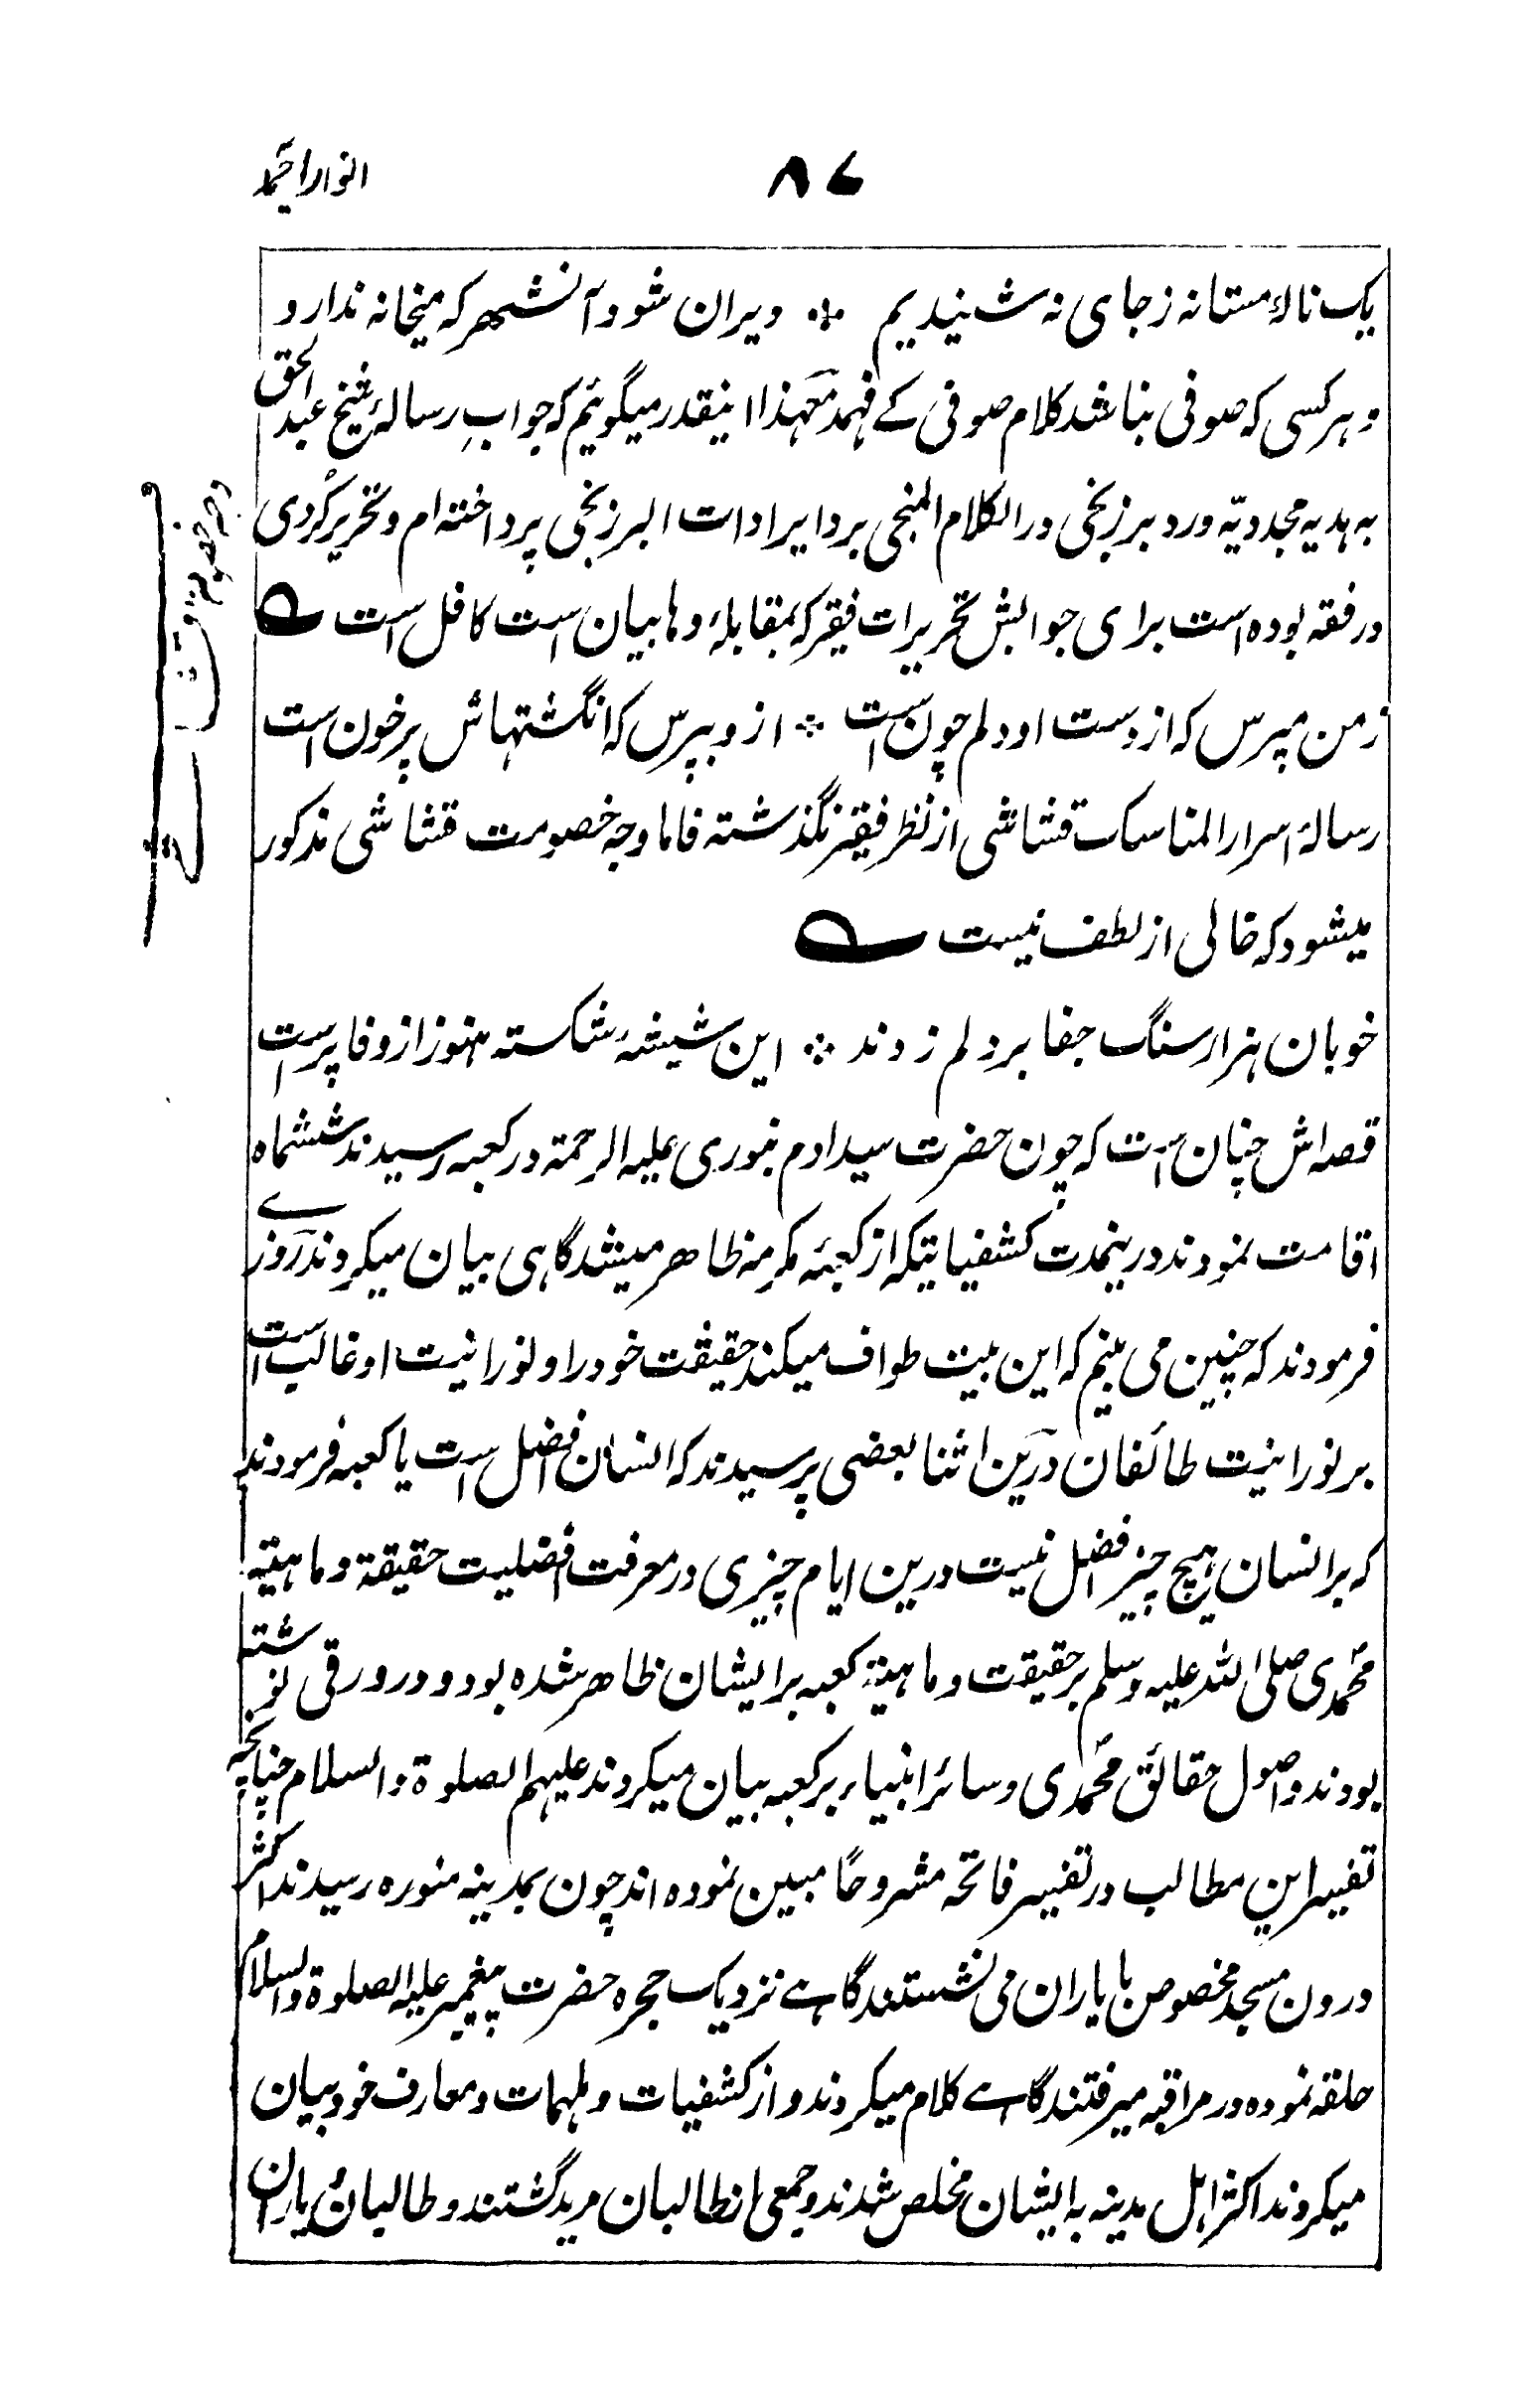 ۸۷
انوار احمد
یک نالۂ مستانه ز جای نه شنیدیم ❊ ویران شود آنشهر که میخانه ندارد
و هر کسی که صوفی نباشد کلام صوفی کے فهمد معهذا اینقدر میگویم که جوابِ رسالۂ شیخ عبد الحق
به هدیه مجددیّه و رد برزنجی در الکلام المنجی برد ایرادات البرزنجی پرداخته ام و تحریر کُردی
در فقه بوده است برای جوابش تحریرات فقیر که بمقابلۂ وهابیان است کافل است ؎
ز من مپرس که از دست او دلم چون است ❊ ازو بپرس که انگشتهاش پر خون است
رسالۂ اسرار المناسک قشاشی از نظر فقیر نگذشته فاما وجه خصومت قشاشی مذکور
میشود که خالی از لطف نیست ؎
خوبان هزار سنگ جفا بر دلم زدند ❊ این شیشه شکسته هنوز از وفا پر است
قصه اش چنان است که چون حضرت سید ادم بنوری علیه الرحمة در کعبه رسیدند ششماه
اقامت نمودند درینمدت کشفیاتیکه از کعبۂ مکرمه ظاهر میشد گاهی بیان میکردند روزے
فرمودند که چنین می بینم که این بیت طواف میکند حقیقت خود را و نورانیت او غالب است
بر نورانیت طائفان درین اثنا بعضی پرسیدند که انسان افضل است یا کعبه فرمودند
که بر انسان هیچ چیز افضل نیست درین ایام چیزی در معرفت افضلیت حقیقة و ماهیته
محمدی صلی الله علیه وسلم بر حقیقت و ماهیة کعبه بر ایشان ظاهر شده بود و در ورقی نوشته
بودند و اصول حقائق محمدی و سائر انبیاء بر کعبه بیان میکردند علیهم الصلوة والسلام چنانچه
تفسیر این مطالب در تفسیر فاتحه مشروحًا مبین نموده اند چون بمدینه منوره رسیدند اکثر
درون مسجد مخصوص با یاران می نشستند گاهے نزدیک حجره حضرت پیغمبر علیه الصلوة والسلام
حلقه نموده در مراقبه میرفتند گاہے کلام میکردند و از کشفیات و ملهمات و معارف خود بیان
میکردند اکثر اهل مدینه به ایشان مخلص شدند و جمعی از طالبان مرید گشتند و طالبان و یاران
وجه خصومت قشاشی